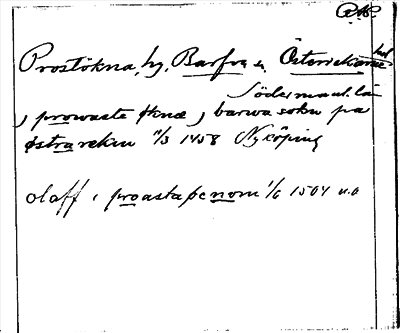 Prostökna, by, Barfva s, Österrekarne hd
Södermanl. län
j prowasta øknæ j barwa sokn pa
østra rekne 11/3 1458 Nyköping
olaff i proasta þenom 1/6 1504 u.o